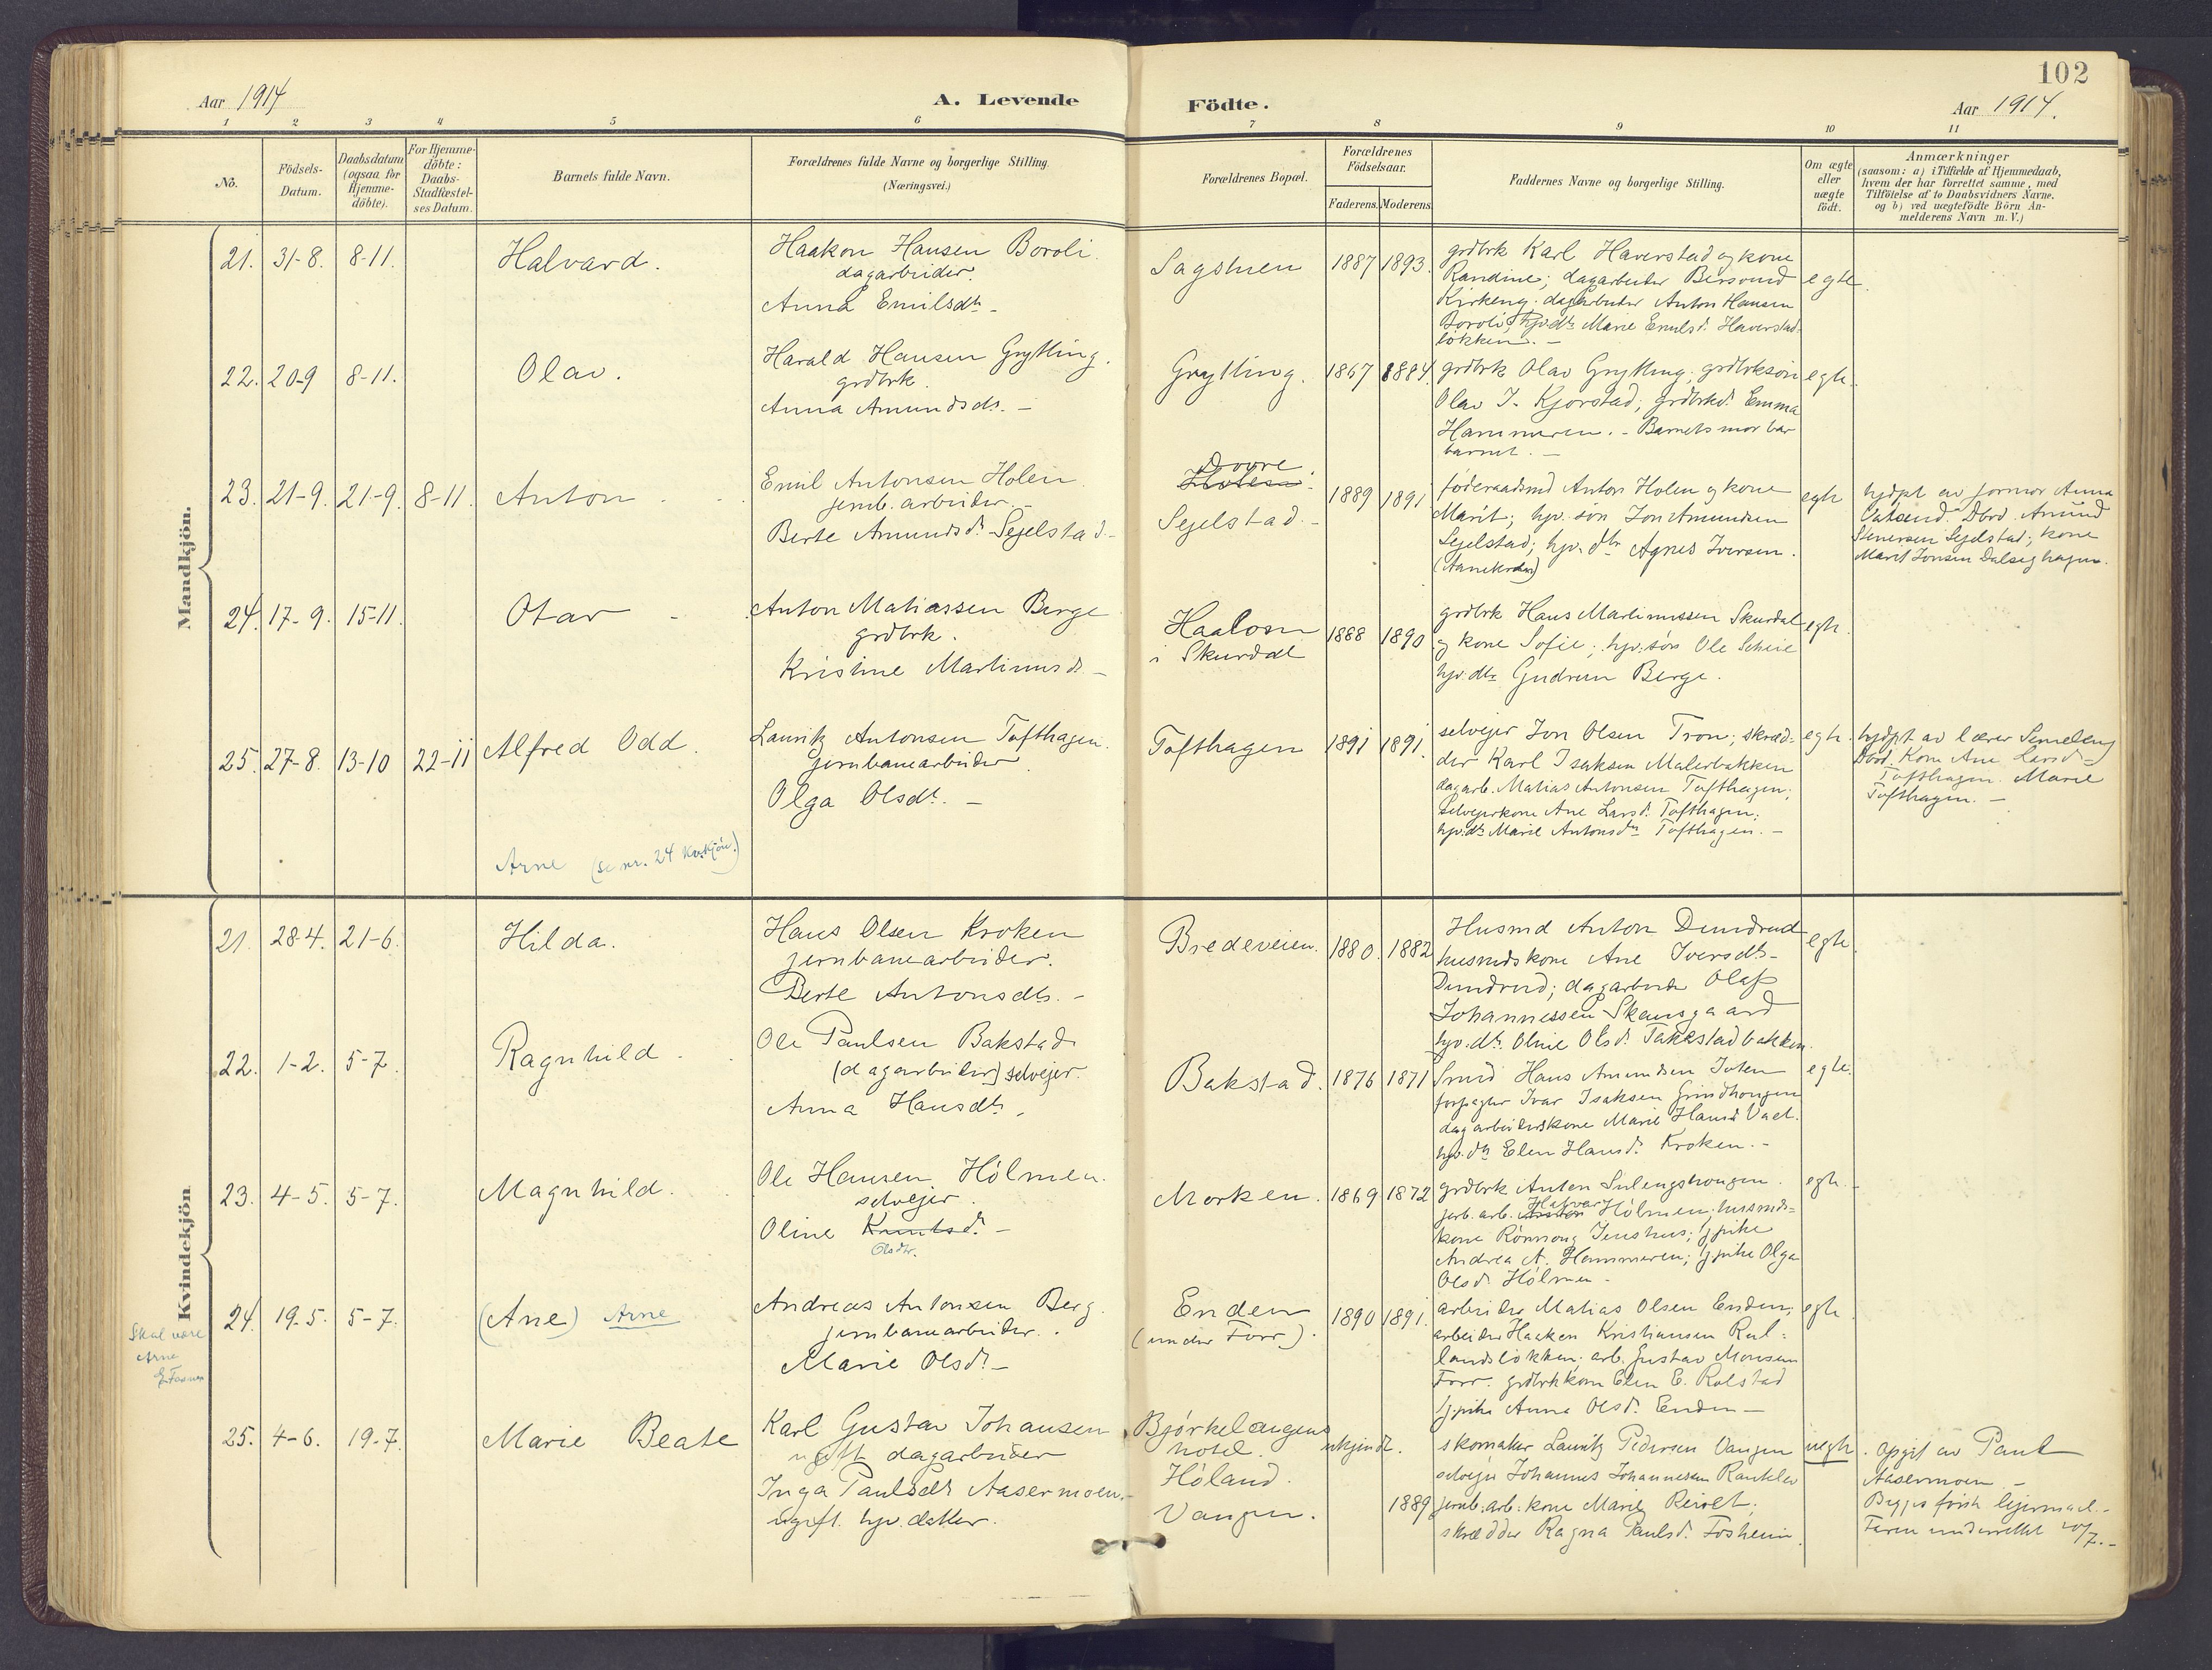 102
Aar 1914
A. Levende Födte.
Aar 1914.
1 2 3 4 5 6 7 8 9 10 11
No.
Födsels-
Datum.
Daabsdatum
(ogsaa for
Hjemme-
döbte).
For Hjemme-
döbte:
Daabs-
Stadfæstel-
ses Datum.
Barnets fulde Navn.
Forældrenes fulde Navne og borgerlige Stilling.
(Næringsvei.)
Forældrenes Bopæl.
Forældrenes
Födselsaar.
Faderens. Moderens.
Faddernes Navne og borgerlige Stilling.
Om ægte
eller
uægte
födt.
Anmærkninger
(saasom: a) i Tilfælde af Hjemmedaab,
hvem der har forrettet samme, med
Tilföielse af to Daabsvidners Navne.
og b) ved uægtefödte Börn An-
melderens Navn m. V.)
Mandkjön.
21. 31-8. 8-11. Halvard.
Haakon Hansen Boroli.
dagarbeider.
Anna Emilsdtr. -
Sagstuen 1887 1893.
grdbrk Karl Haverstad og kone
Randine; dagarbeider Bersvend
Kirkeng. dagarbeider Anton Hansen
Boroli; hjv.dtr Marie Emilsd. Haverstad-
løkken. -
egte.
22. 20-9 8-11. Olav.
Harald Hansen Grytting.
grdbrk.
Anna Amundsdr. -
Grytting. 1867 1884.
grdbrk Olav Grytting; grdbrksøn
Olav J. Kjorstad; grdbrkd. Emma
Hammeren. - Barnets mor bar
barnet. -
egte.
23. 21-9. 21-9. 8-11. Anton
Emil Antonsen Holen.
jernb. arbeider. -
Berte Amundsd. Sejelstad -
Dovre
Holen.
Sejelstad. - 1889 1891
føderaadsmd Anton Holen og kone
Marit; hjv. søn Jon Amundsen
Sejelstad; hjv. dtr Agnes Iversen.
egte
hjdpt av formor Anna
Dbvd. Amund
Stenersen Sejelstad; kone
Marit Jonsen Dalseghagen.
24. 17-9. 15-11. Otar
Anton Matiassen Berge
grdbrk.
Kristine Martinusd. -
Haalosen
i Skurdal 1888 1890
grdbrk Hans Martinussen Skurdal
og kone Sofie; hjv. søn Ole Scheie
hjv. dtr. Gudrun Berge.
egte.
25. 27-8. 13-10 22-11 Alfred Odd.
Lauritz Antonsen Tofthagen.
jernbanearbeider.
Olga Olsdt. -
Tofthagen 1891 1891.
selveier Jon Olsen Tron; skræd-
der Karl Isaksen Malerbakken
dagarb. Matias Antonsen Tofthagen;
selveierkone Ane Larsd. Tofthagen;
hjv. dtr Marie Antonsdtr Tofthagen. -
egte.
hjdpt av lærer Semeleng
Dbvd. Kone Ane Larsd -
Tofthagen. Marie
Tofthagen. -
Arne (se nr. 24 Kv.kjøn.)
Kvindekjön
21. 28-4. 21-6. Hilda.
Hans Olsen Kroken
jernbanearbeider.
Berte Antonsdtr. -
Bredeveien. 1880. 1882
Husmd Anton Dundrud
husmdskone Ane Iversdtr-
Dundrud; dagarbeider Olaf
Johannessen Skansgaard
hjv. dtr. Oline Olsd. Takstadbakken.
egte.
22. 1-2. 5-7. Ragnhild
Ole Paulsen Bakstad
(dagarbeider) selveier.
Anna Hansdtr.
Bakstad. 1876 1871
Smed Hans Amundsen Joten
forpagter Ivar Isaksen Grindhougen
dagarbeiderskone Marie Hansd Vael.
hjv. dtr Elen Hansd. Kroken. -
egte.
23. 4-5. 5-7. Magnhild.
Ole Hansen Hólmen.
selveier.
Oline Knutsd. -
Olsdtr.
Morken. 1869 1872
grdbrk Anton Sulengshougen.
jerb. arb. Halvar Hólmen; husmds-
kone Rønnoug Jenshus; g.pike
Andrea A. Hammeren; g.pike Olga
Olsd. Hólmen -
egte.
24. 19-5. 5-7. (Ane) Arne
Skal være
Arne
Andreas Antonsen Berg.
jernbanearbeider.
Marie Olsd. -
Enden
(under Forr). 1890 1891.
arbeider Matias Olsen Enden;
arbeider Haaken Kristiansen Rul-
landsløkken; arb. Gustav Monsen
Forr. grdbrkkone Elen E. Rolstad
g.pike Anna Olsd. Enden -
egte
25. 4-6. 19-7. Marie Beate
Karl Gustav Johansen
ugift dagarbeider
Inga Paulsdtr Aasermoen.
ugift. hjv. datter.
Bjørkelangens
hotel.
Höland.
Vangen.
ukjendt.
1889
skomaker Lauritz Pedersen Vangen
selveier Johannes Johannesen Rankles
jernb. arb. kone Marie Reiret;
skrædder Ragna Paulsd. Fosheim.
uegte.
Opgit av Paul
Aasermoen -
Begges første leiermaal. -
Faren underrettet 20/7. -